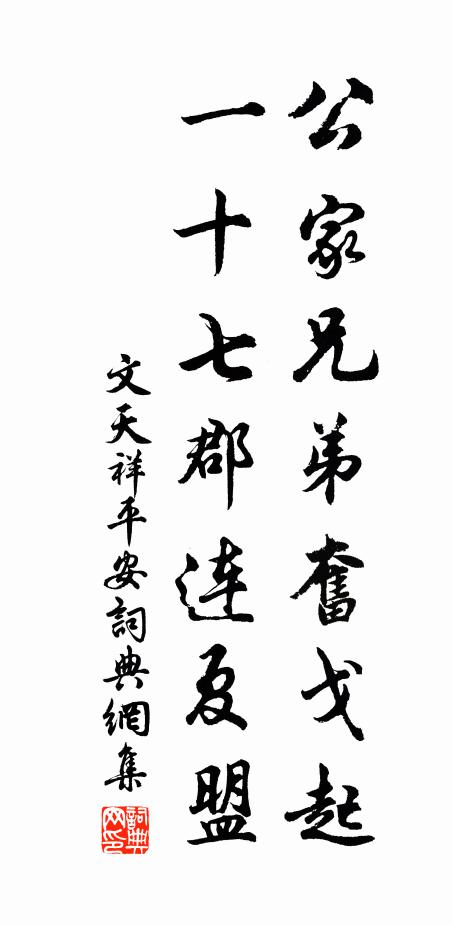 公家兄弟奮戈起
一十七郡連夏盟
文天祥平安詞典網集
詞典网印